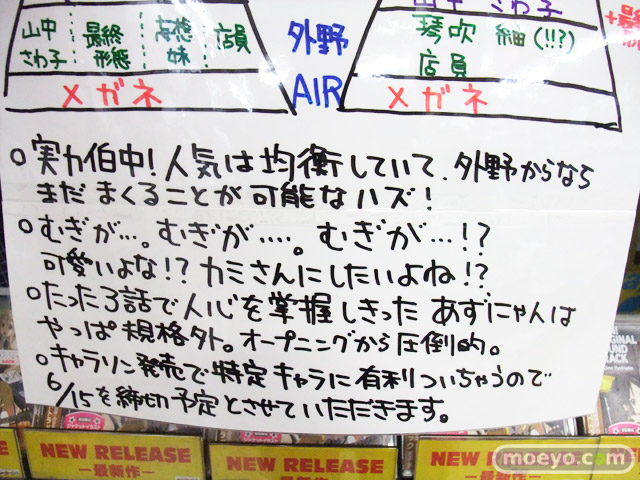 山中 さわ子
山中 さわ子
最終形態
憂 妹
店員
外野
AIR
琴吹 紬(!!?)
店員
メガネ
メガネ
○実力伯中!人気は均衡していて、外野からなら
まだまくることが可能なハズ!
○むぎが…。むぎが‥‥。むぎが…!?
可愛いよな!?カミさんにしたいよね!?
○たった3話で人心を掌握しきったあずにゃんは
やっぱ規格外。オープニングから圧倒的。
○キャラソン発売で特定キャラに有利ついちゃうので
6/15を締切予定とさせていただきます。
NEW RELEASE
NEW RELEASE
NEW RELEASE
-最新作-
-最新作-
-最新作-
moeyo.com